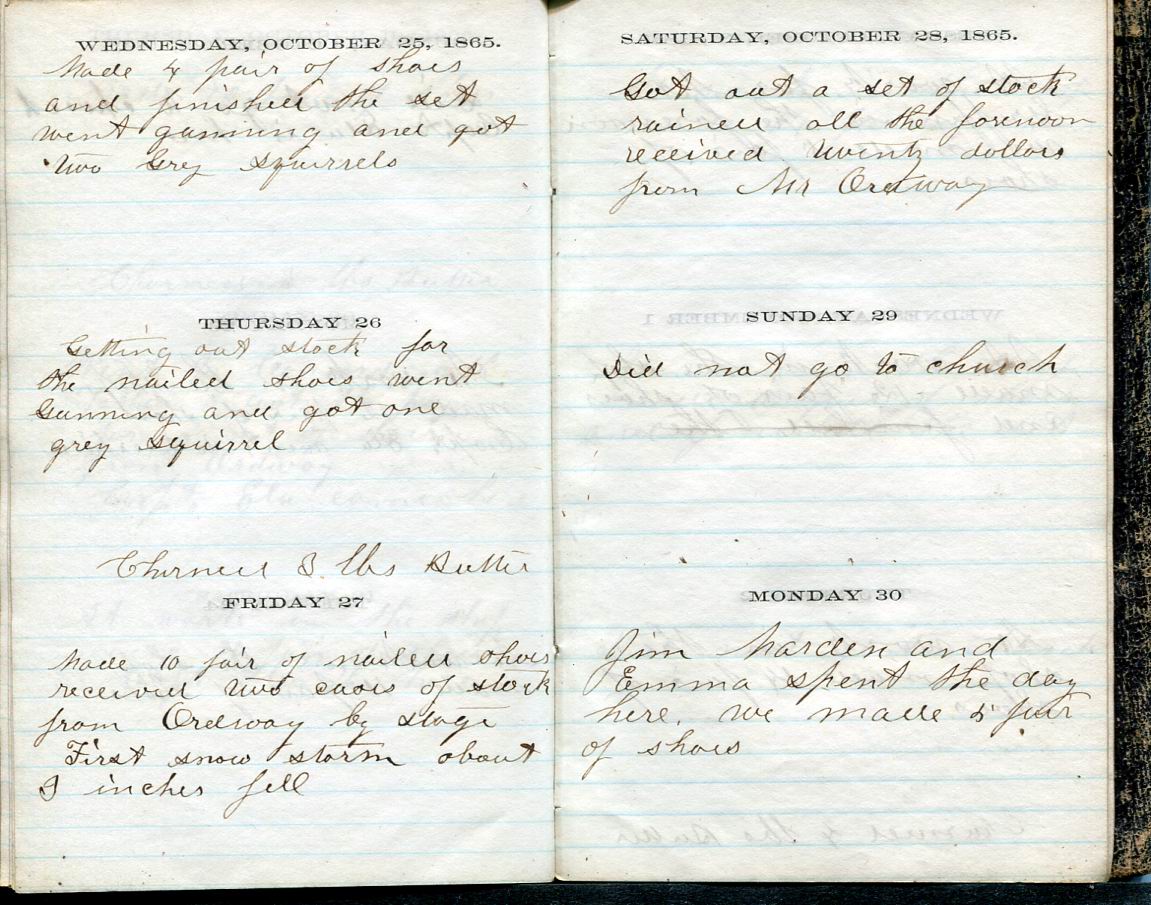 WEDNESDAY, OCTOBER 25, 1865.
Made 4 pair of shoes
and finished the set
went gunning and got
two Grey squirrels
THURSDAY 26
Getting out stock for
the nailed shoes went
Gunning and got one
grey squirrel
Churned 8 lbs Butter
FRIDAY 27
Made 10 pair of nailed shoes
received two cases of stock
from Ordway by stage
First snow storm about
3 inches fell
SATURDAY, OCTOBER 28, 1865.
Got out a set of stock
rained all the forenoon
received twenty dollars
from Mr Ordway
SUNDAY 29
Did not go to church
MONDAY 30
Jim Marden and
Emma spent the day
here. we made 5 pair
of shoes